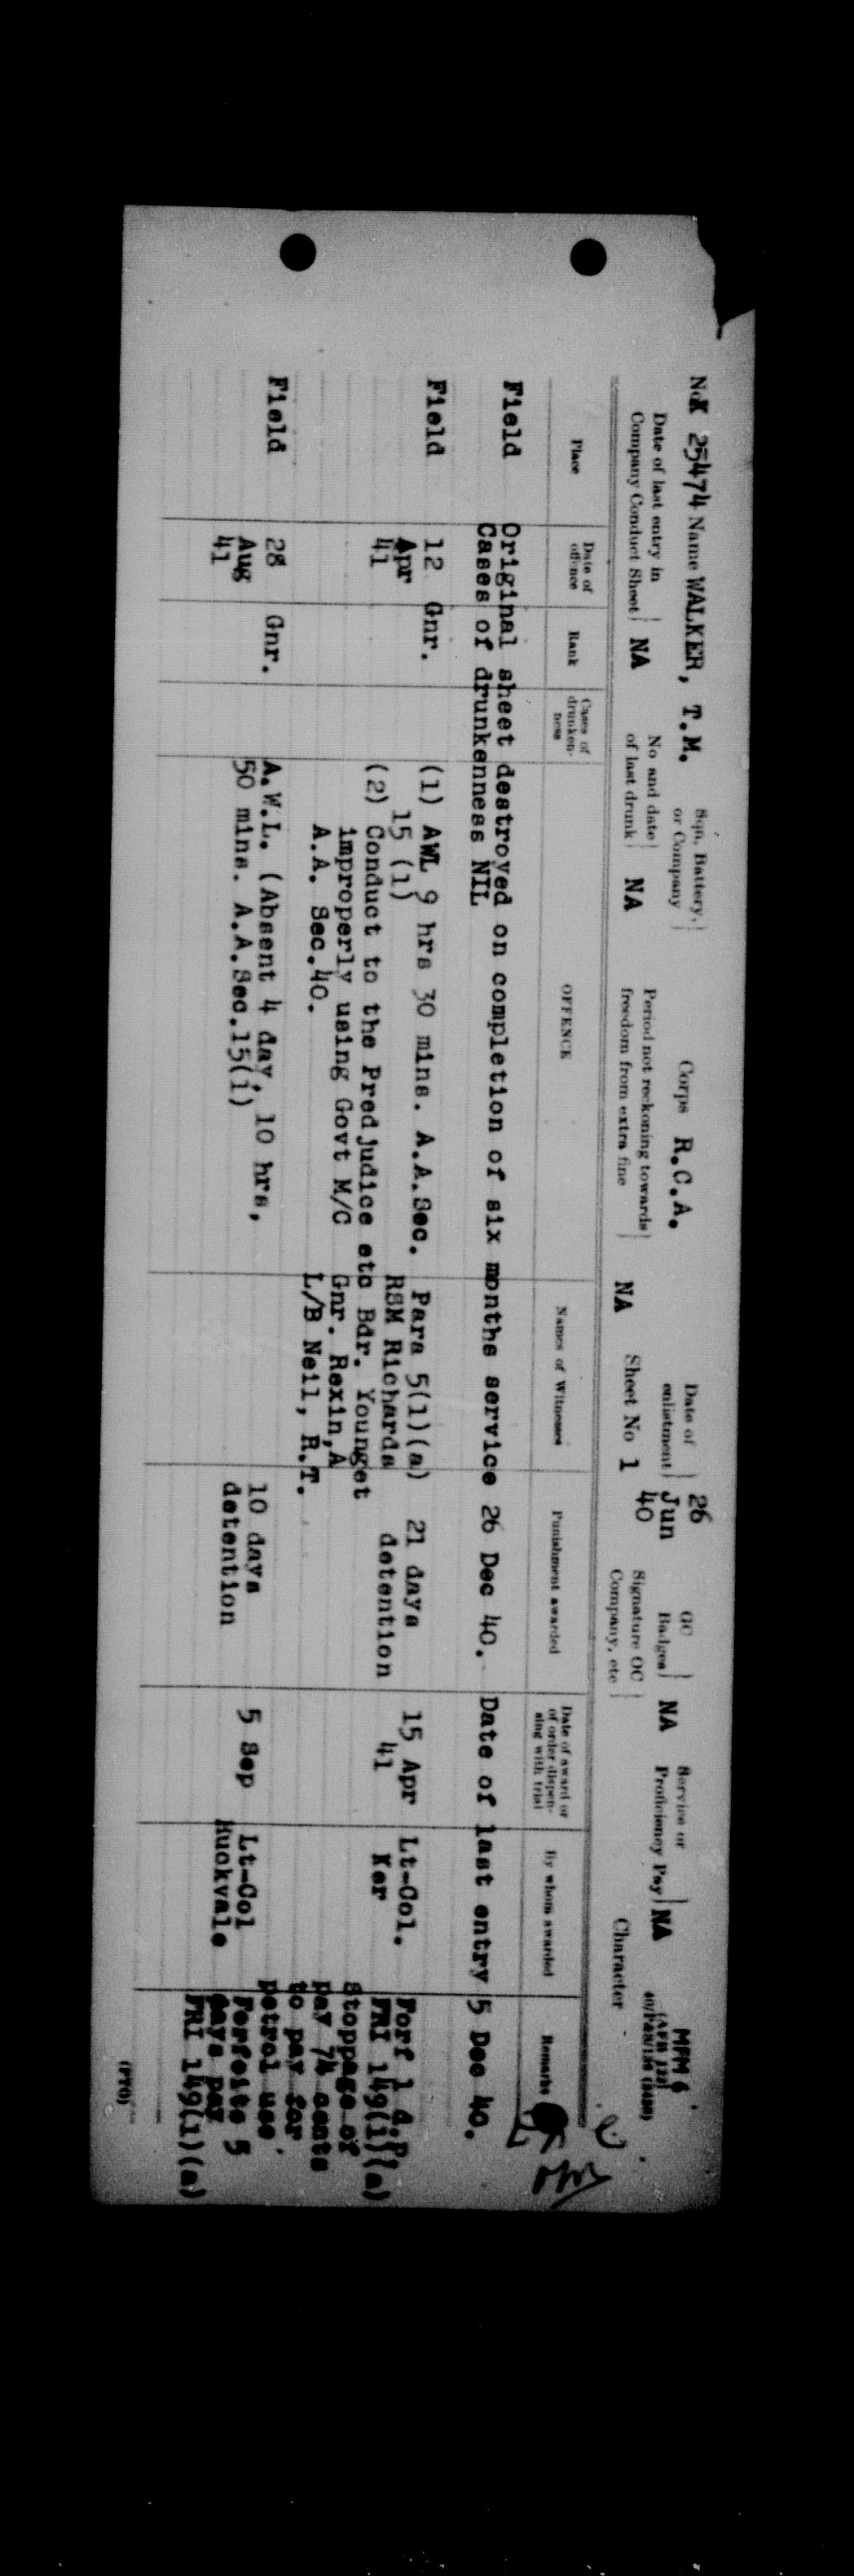 No K 25474 Name WALKER, T.M. Sqn, Battery, or Company Corps R.C.A. Date of enlistment 26 Jun 40 GC Badges NA Service or Proficiency Pay NA
MFM 6
(AFB 121)
Date of last entry in Company Conduct Sheet NA No and date of last drunk NA Period not reckoning towards freedom from extra fine NA Sheet No 1 Signature OC Company, etc Character
Place Date of offence Rank Cases of drunken-ness OFFENCE Names of Witnesses Punishment awarded Date of award or of order dispen-sing with trial By whom awarded Remarks
Field Original sheet destroyed on completion of six months service 26 Dec 40. Date of last entry 5 Dec 40.
Cases of drunkenness NIL
Field 12 Gnr. (1) AWL 9 hrs 30 mins. A.A.Sec. Para 5(1)(a) 21 days 15 Apr Lt-Col. Forf 1 d.P.
Apr 15 (1) RSM Richards detention 41 Ker FRI 149(1)(a)
41 (2) Conduct to the Predjudice etc Bdr. Younget Stoppage of
improperly using Govt M/C Gnr. Rexin,A pay 74 cents
A.A. Sec.40. L/B Neil, R.T. to pay for
petrol use
Field 28 Gnr. A.W.L. (Absent 4 day, 10 hrs, 10 days 5 Sep Lt-Col Forfeits 5
Aug 50 mins. A.A.Sec.15(1) detention Huckvale days pay
41 FRI 149(1)(a)
(PTO)